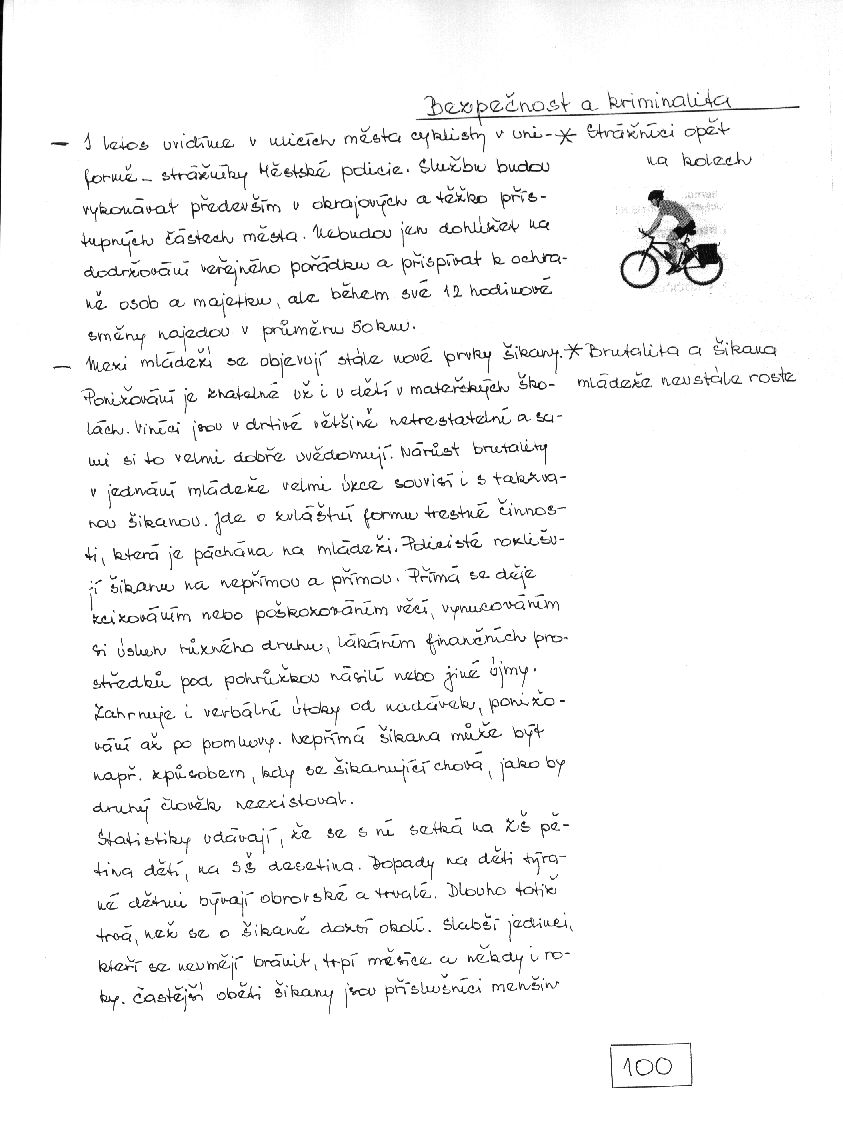 Bezpečnost a kriminalita
— I letos uvidíme v ulicích města cyklisty v uni-
formě – strážníky Městské policie. Službu budou
vykonávat především v okrajových a těžko přís-
tupných částech města. Nebudou jen dohlížet na
dodržování veřejného pořádku a přispívat k ochra-
ně osob a majetku, ale během své 12 hodinové
směny najedou v průměru 50 km.
* Strážníci opět
na kolech
— Mezi mládeží se objevují stále nové prvky šikany.
Ponižování je znatelné už i u dětí v mateřských ško-
lách. Viníci jsou v drtivé většině netrestatelní a sa-
mi si to velmi dobře uvědomují. Nárůst brutality
v jednání mládeže velmi úzce souvisí i s takzva-
nou šikanou. Jde o zvláštní formu trestné činnos-
ti, která je páchána na mládeži. Policisté rozlišu-
jí šikanu na nepřímou a přímou. Přímá se děje
zcizováním nebo poškozováním věcí, vynucováním
si úsluh různého druhu, lákáním finančních pro-
středků pod pohrůžkou násilí nebo jiné újmy.
Zahrnuje i verbální útoky od nadávek, ponižo-
vání až po pomluvy. Nepřímá šikana může být
např. způsobem, kdy se šikanující chová, jako by
druhý člověk neexistoval.
Statistiky udávají, že se s ní setká na ZŠ pě-
tina dětí, na SŠ desetina. Dopady na děti týra-
né dětmi bývají obrovské a trvalé. Dlouho totiž
trvá, než se o šikaně dozví okolí. Slabší jedinci,
kteří se neumějí bránit, trpí měsíce a někdy i ro-
ky. Častější oběti šikany jsou příslušníci menšin
* Brutalita a šikana
mládeže neustále roste
100